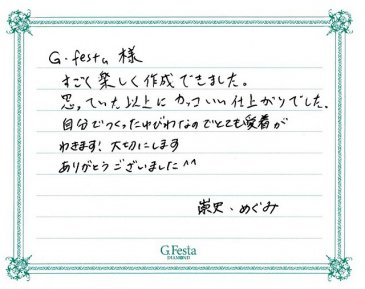 G.festa 様
すごく楽しく作成できました。
思っていた以上にカッコいい仕上がりでした。
自分でつくったゆびわなのでとても愛着が
わきます！大切にします
ありがとうございました^^
崇史・めぐみ
G.Festa
DIAMOND